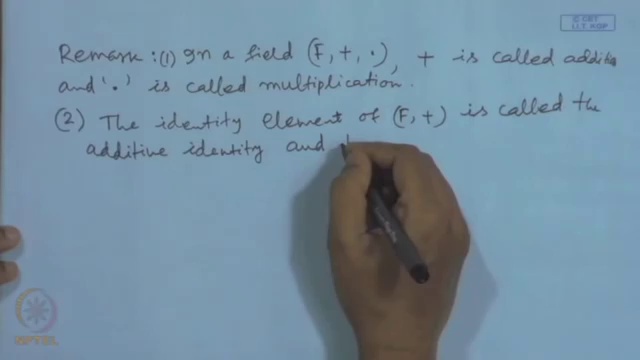 Remark :(1) In a field (F, +, ·), + is called additio
and '·' is called multiplication.
(2) The identity element of (F, +) is called the
additive identity and
© CET
I.I.T. KGP
NPTEL